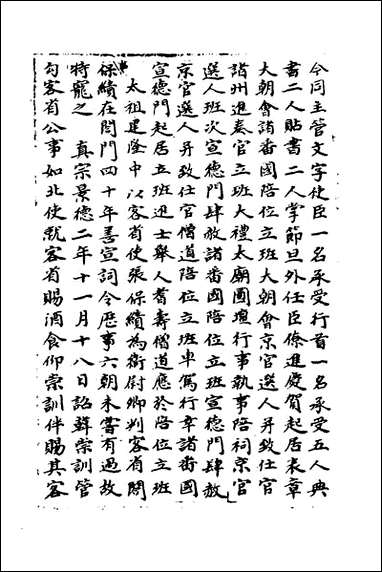 令同主管文字使臣一名承受行首一名承受五人典
書二人貼書二人掌節旦外任臣僚進慶賀起居表章
大朝會諸番國陪位立班大朝會京官選人并致仕官
諸州進奏官立班大禮太廟圜壇行事執事陪祠京官
選人班次宣德門肆赦諸番國陪位立班宣德門肆赦
京官選人并致仕官僧道陪位立班車駕行幸諸番國
宣德門起居立班進士舉人耆壽僧道應於陪位立班
太祖建隆中以客省使張保續為衛尉卿判客省閤
保續在閤門四十年善宣詞令歷事六朝未嘗有過故
特寵之 真宗景德二年十一月十八日詔薛崇訓管
勾客省公事如北使就客省賜酒食仰崇訓伴賜其客